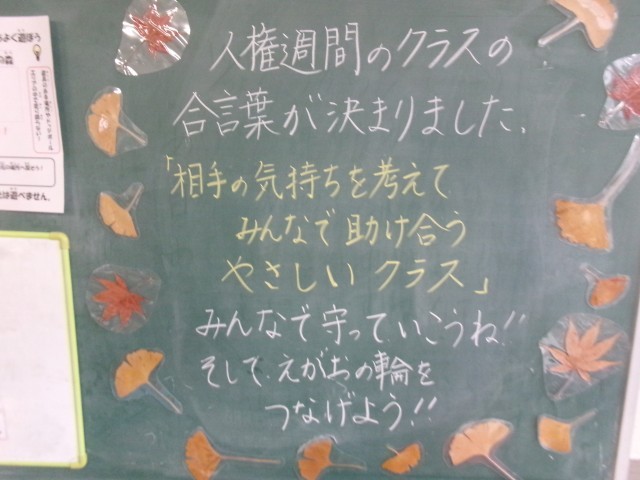 人権週間のクラスの
合言葉が決まりました。
「相手の気持ちを考えて
みんなで助け合う
やさしいクラス」
みんなで守っていこうね!!
そして、えがおの輪を
つなげよう!!
よく遊ぼう
は遊べません。